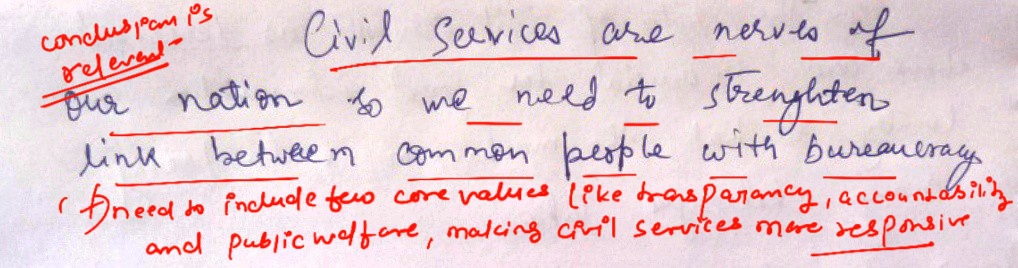 conclusion is
relevant-
Civil Services are nerves of
our nation so we need to strenghten
link between common people with bureaucracy
need to include few core values (like transparancy, accountability
and public welfare, making civil services more responsive